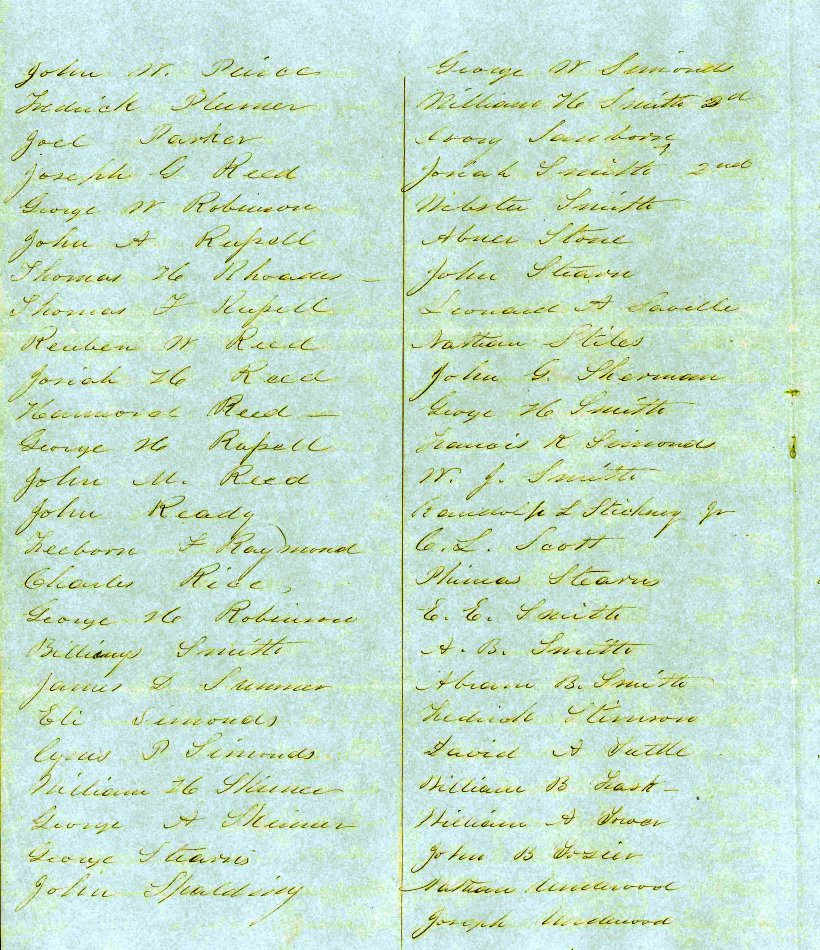 John W. Peirce
Fedrick Plumer
Joel Parker
Joseph G Reed
George W Robinson
John A Russell
Thomas H Rhoades
Thomas F Russell
Reuben W Reed
Josiah H Reed
Hammond Reed
George H Russell
John M. Reed
John Ready
Feeborn F Raymond
Charles Rice
George H Robinson
Billings Smith
James D Sumner
Eli Simonds
Cyrus P Simonds
William H Skinner
George A Skinner
George Stearns
John Spalding
George W Simonds
William H Smith 2d
Ivory Sanborn
Josiah Smith 2nd
Webster Smith
Abner Stone
John Stearn
Leonard A Saville
Nathan Stiles
John G. Sherman
George H Smith
Francis K Simonds
W. J. Smith
Randolph L Stickney Jr
C. L. Scott
Phineas Stearns
E. E. Smith
A. B. Smith
Abram B. Smith
Fedrick Stimson
David A Tuttle
William B Trask
William A Tower
John B Tozier
Nathan Underwood
Joseph Underwood